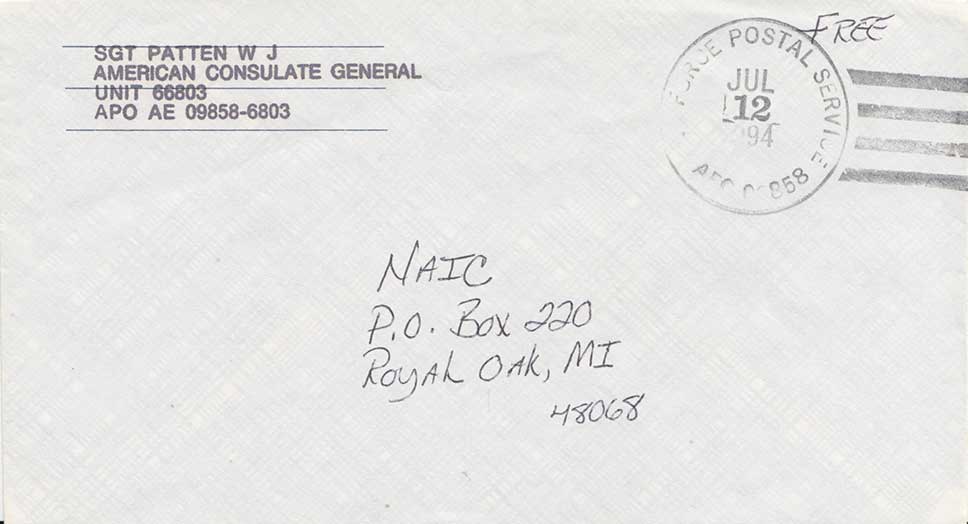 SGT PATTEN W J
AMERICAN CONSULATE GENERAL
UNIT 66803
APO AE 09858-6803
FREE
FORCE POSTAL SERVICE
JUL
12
994
APO 858
NAIC
P.O. Box 220
Royal Oak, MI
48068